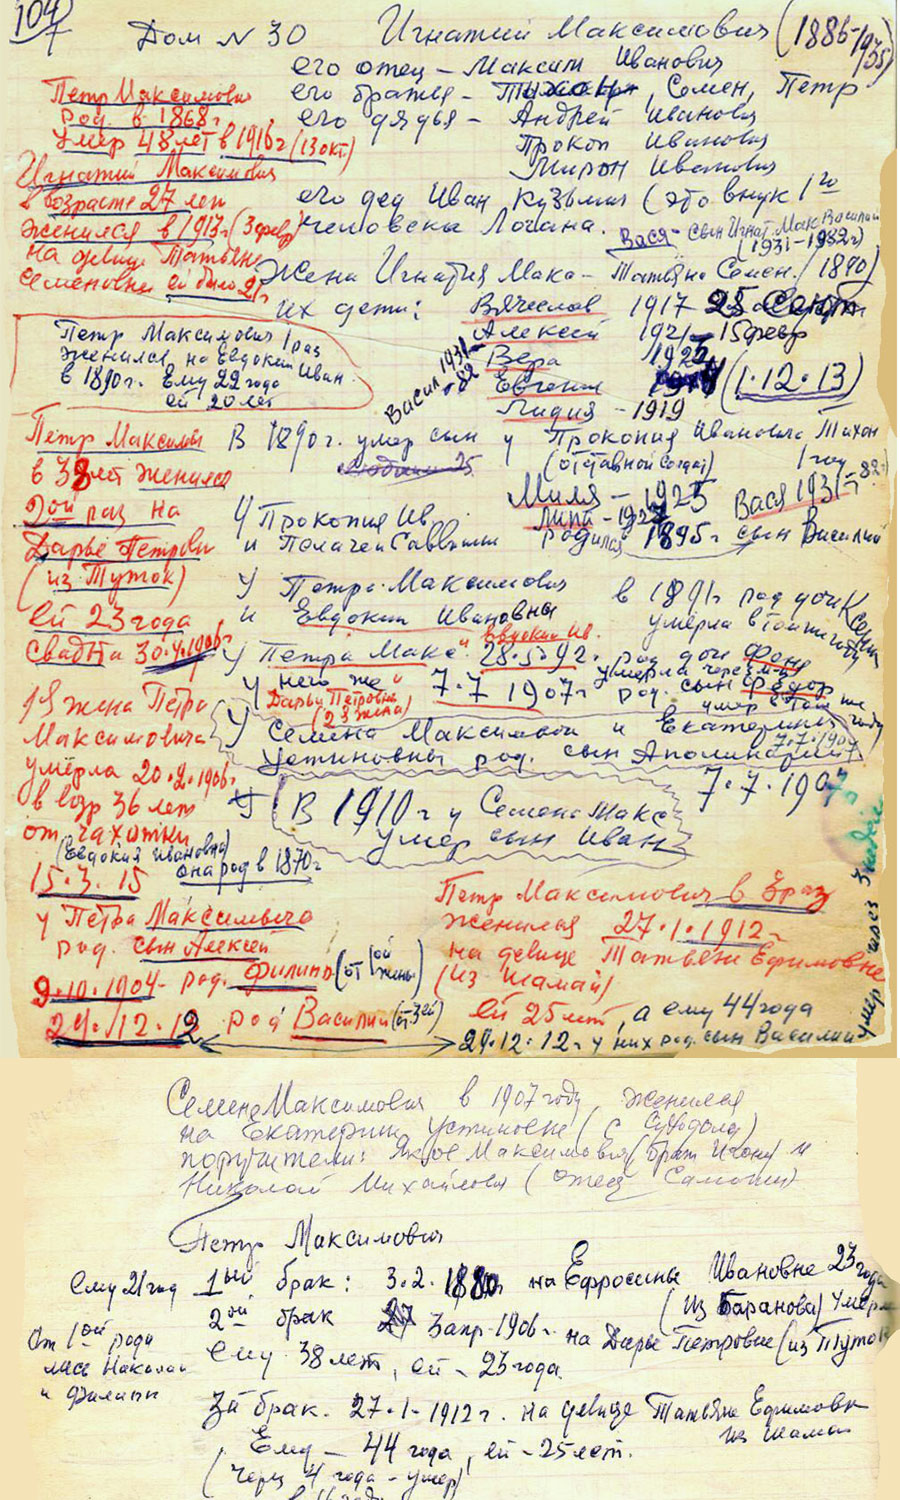 104
7
Дом N 30 Игнатий Максимович (1886-1935)
его отец – Максим Иванович
его братья – Тихон, Семен, Петр
его дядья – Андрей Иванович
Прокоп Иванович
Мирон Иванович
его дед Иван Кузьмич (это внук 1го
человека Лочана.
Вася – сын Игнат. Мак. Василий
(1931-1982г)
Жена Игнатия Макс – Татьяна Семен. (1890)
их дети: Вячеслав 1917 25 сент
Алексей 1921 – 15 февр
Вера 1925
Евгений (1.12.13)
Лидия – 1919
Васил 1931-82
Петр Максимович
род. в 1868г.
умер 48 лет в 1916г (13 окт.)
Игнатий Максимович
в возрасте 27 лет
женился в 1913г. (3 февр)
на девице Татьяне
Семеновне ей было 21г.
Петр Максимович 1 раз
женился на Евдокии Иван.
в 1890г. Ему 22 года
ей 20 лет
Петр Максимов
в 38 лет женился
2ой раз на
Дарье Петровн
(из Туток)
ей 23 года
свадьба 30.4.1906г
1я жена Петра
Максимовича
умерла 20.2.1906г.
в возр 36 лет
от чахотки
(Евдокия Ивановна)
она род в 1870г
15.3.15
у Петра Максимовича
род. сын Алексей
9.10.1904 – род. Филипп (от 1ой жены)
24.12.12 род Василий (от 3ей)
В 1890г. умер сын у Прокопия Ивановича Тихон
(отставной солдат) 1 год
Миля – 1925 Вася 1931-82г.
Липа – 1927
У Прокопия Ив.
и Пелагеи Саввишны родился 1895г. сын Василий
У Петра Максимович
и Евдокии Ивановны в 1891г род дочь Ксения
умерла в том же году
У Петра Макс. и Евдокии Ив. 28.5.92г. род дочь
умерла через
у него же и 7.7 1907г род. сын Федор
Дарьи Петровны умер в том же году
(2я жена)
У Семена Максимовой и Екатерины
Устиновны род. сын Аполинарий 7.7.1907
7.7.1907г
У В 1910г у Семена Макс
умер сын Иван
умер через 3 недели
Петр Максимович в 3 раз
женился 27.1.1912г
на девице Татьяне Ефимовне
(из Шамай)
ей 25 лет, а ему 44 года
24.12.12г у них род. сын Василий
Семен Максимович в 1907 году женился
на Екатерине Устиновне (с Суходола)
поручители: Яков Максимович (брат) и
Николай Михайлович (отец)
Петр Максимович
Ему 21 год 1ый брак: 3.2.1880г на Ефросинье Ивановне 23 года
(из Баранова) умерла
2ой брак 3 апр. 1906г. на Дарье Петровне (из Туток
ему 38 лет, ей – 23 года.
От 1ой роди
лись Николай
и Филипп
3й брак. 27.1.1912г. на девице Татьяне Ефимовн
из Шама
Ему – 44 года, ей – 25 лет.
(Через 4 года – умер)